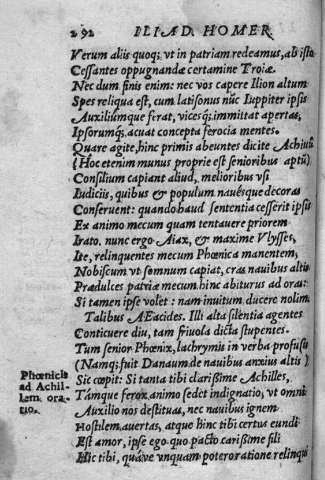 292 ILIAD. HOMER
Verum aliis quoq;, vt in patriam redeamus, ab isto
Cessantes oppugnandæ certamine Troiæ.
Nec dum finis enim: nec vos capere Ilion altum
Spes reliqua est, cum latisonus nūc Iuppiter ipsis
Auxiliúmque ferat, vicesq́; immittat apertas,
Ipsorumq́; acuat concepta ferocia mentes.
Quare agite, hinc primis abeuntes dicite Achiuū
(Hoc etenim munus proprie est senioribus aptū)
Consilium capiant aliud, melioribus vsi
Iudiciis, quibus & populum nauésque decoras
Conseruent: quando haud sententia cesserit ipsis
Ex animo mecum quam tentauere priorem
Irato. nunc ergo Aiax, & maxime Vlysses,
Ite, relinquentes mecum Phœnica manentem,
Nobiscum vt somnum capiat, cras nauibus altis
Prædulces patriæ mecum hinc abiturus ad oras:
Si tamen ipse volet: nam inuitum ducere nolim.
Talibus AEacides. Illi alta silentia agentes
Conticuere diu, tam friuola dicta stupentes.
Tum senior Phœnix, lachrymis in verba profusis
(Namq́; fuit Danaum de nauibus anxius altis)
Sic cœpit: Si tanta tibi clarissime Achilles,
Phœnicis
ad Achil-
lem, ora-
tio.
Támque ferox animo sedet indignatio, vt omni
Auxilio nos destituas, nec nauibus ignem
Hostilem auertas, atque hinc tibi certus eundi
Est amor, ipse ego quo pacto carissime fili
Hic tibi, quáve vnquam poteror ratione relinqui